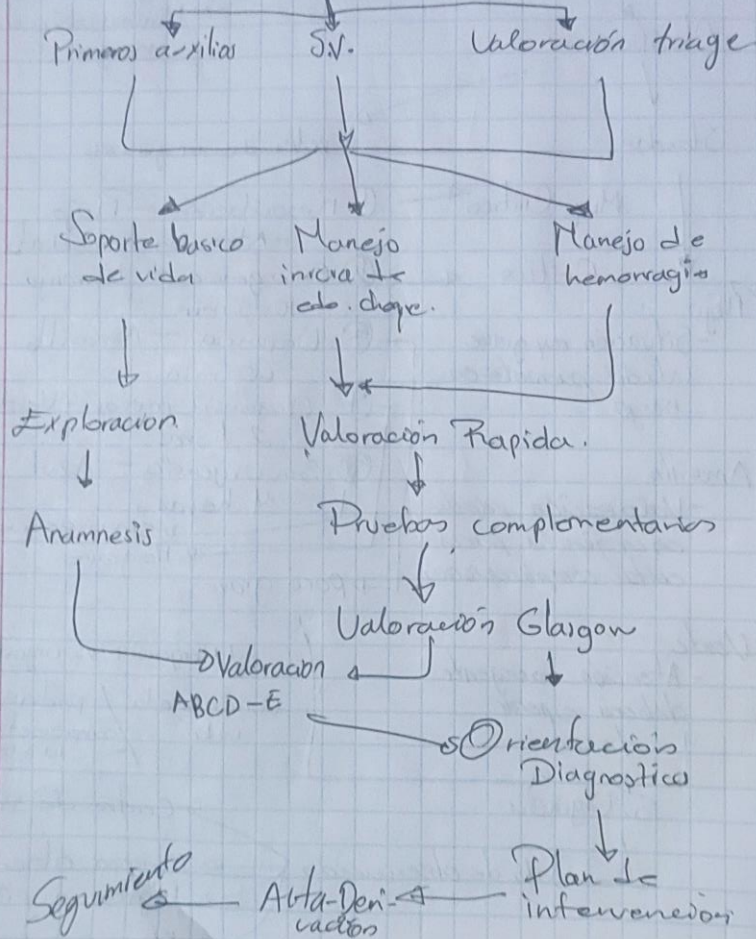 Primeros auxilios
S.V.
Valoración triage
Soporte basico
de vida
Manejo
inicia de
edo. choqe.
Manejo de
hemorragia
Exploracion
Valoración Rapida.
Anamnesis
Pruebas complementarias
Valoración Glasgow
Valoracion
ABCD-E
Orientación
Diagnostica
Plan de
intervención
Alta-Deri-
vación
Seguimiento